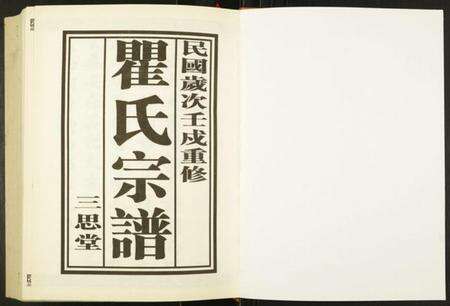 民國歲次壬戌重修
瞿氏宗譜
三思堂